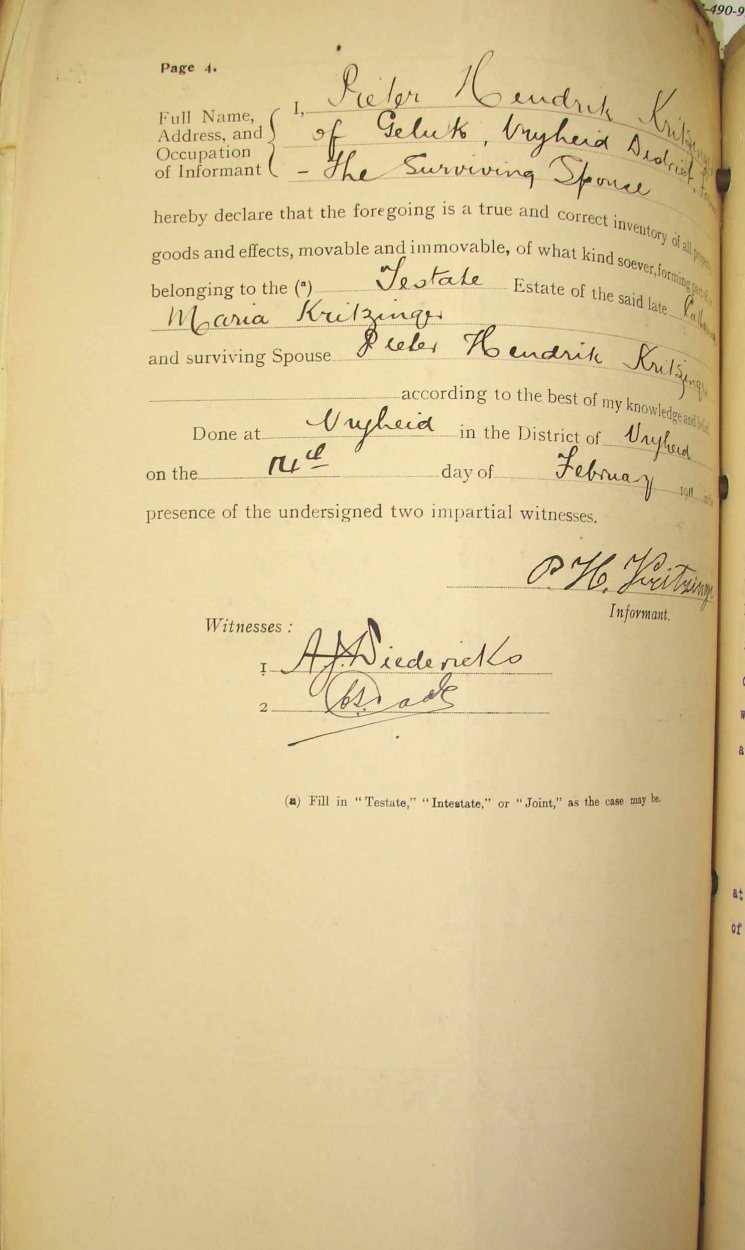 -490-9
Page 4.
Full Name, Address, and Occupation of Informant
I, Pieter Hendrik Kritzinger
of Geluk, Vryheid District,
- The Surviving Spouse
hereby declare that the foregoing is a true and correct inventory of all property
goods and effects, movable and immovable, of what kind soever, forming part of or
belonging to the (a) Testate Estate of the said late
Maria Kritzinger
and surviving Spouse Pieter Hendrik Kritzinger
according to the best of my knowledge and belief.
Done at Vryheid in the District of Vryheid
on the 14th day of February 191
presence of the undersigned two impartial witnesses.
P. H. Kritzinger
Informant.
Witnesses :
1 A.J. Diedericks
2
(a) Fill in "Testate," "Intestate," or "Joint," as the case may be.
at
of